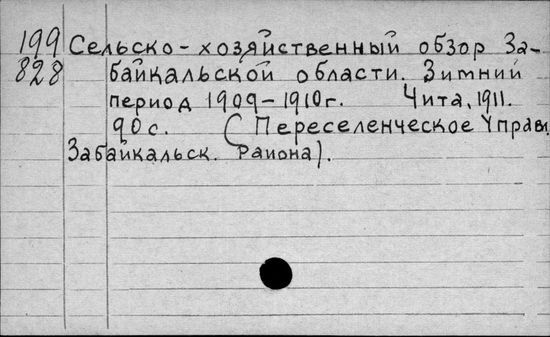 199 Сельско-хозяйственный обзор За-
828 байкальской области. Зимний
период 1909-1910г. Чита, 1911.
90с. (Переселенческое Управ.
Забайкальск. Района).